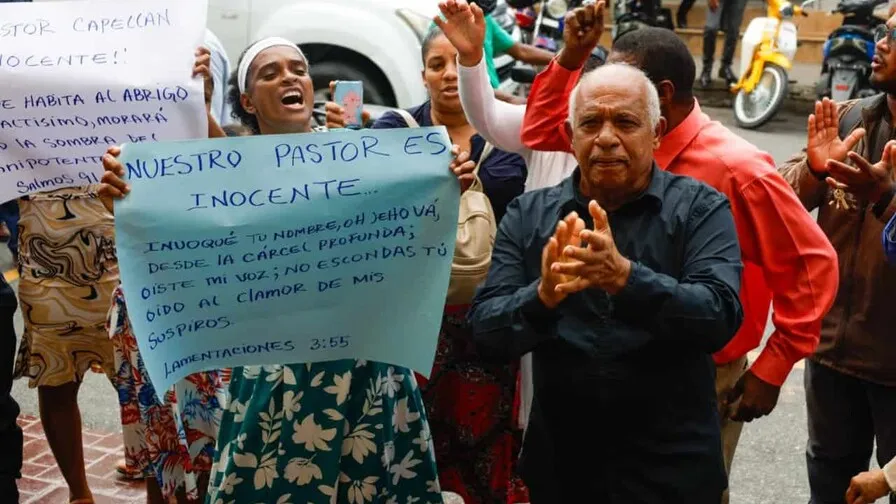 STOR CAPELLAN
NOCENTE!!
E HABITA AL ABRIGO
ALTISIMO, MORARÁ
O LA SOMBRA DEL
NIPOTENT
SALMOS 91
NUESTRO PASTOR ES
INOCENTE...
INVOQUÉ TU NOMBRE, OH JEHOVÁ,
DESDE LA CÁRCEL PROFUNDA;
OISTE MI VOZ; NO ESCONDAS TÚ
OIDO AL CLAMOR DE MIS
SUSPIROS.
LAMENTACIONES 3:55